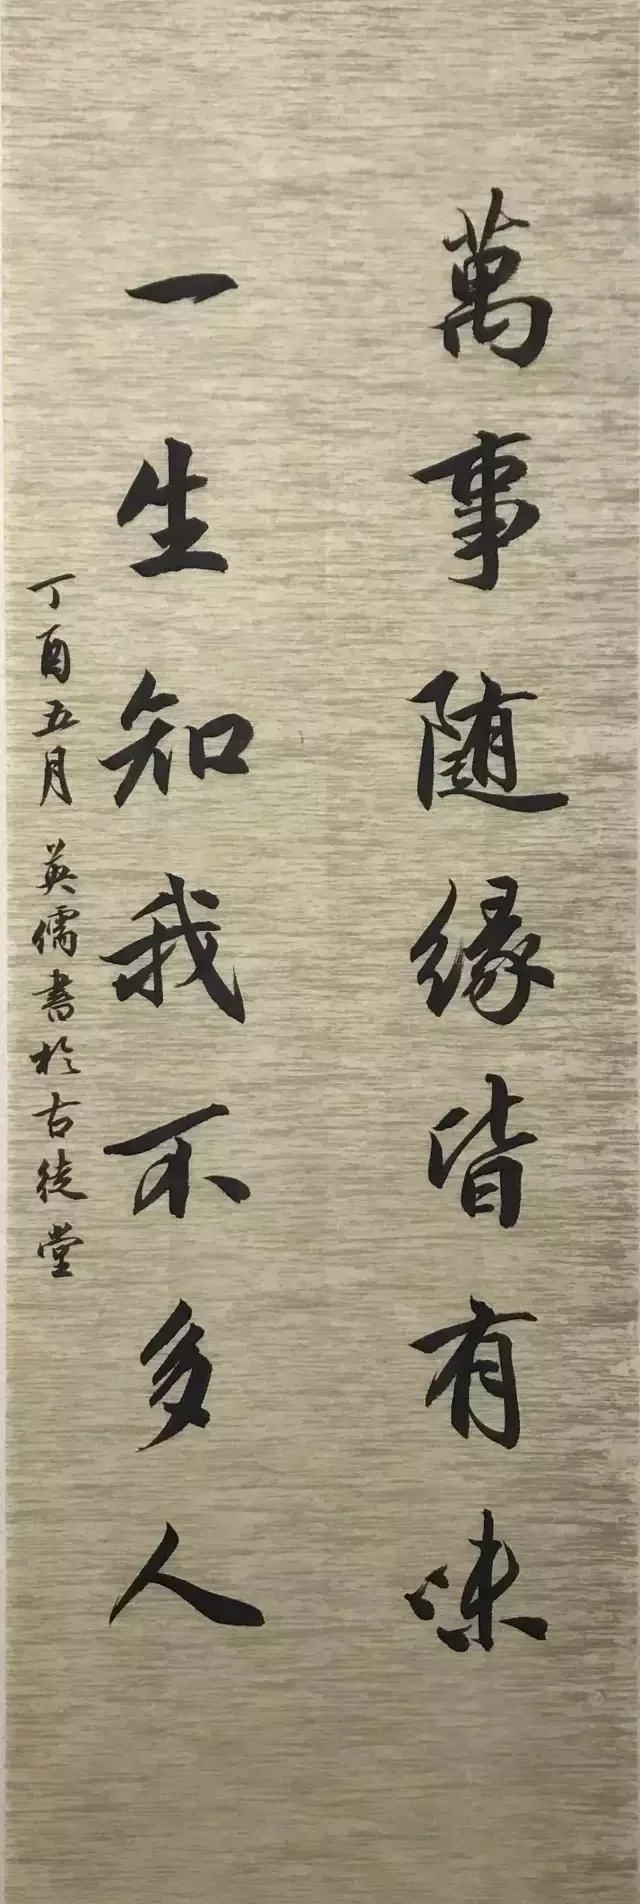 萬事随緣皆有味
一生知我不多人
丁酉五月英儒書於古徒堂